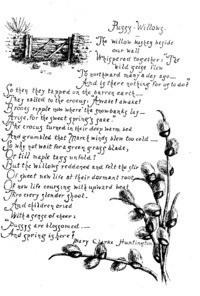 Pussy Willows.
The willow bushes beside
our wall
Whispered together: "The
wild geese flew
To northward many a day ago—
And is there nothing for us to do?"
So then they tapped on the barren earth—
They called to the crocus: Awake! awake!
Brooks ripple now where the snowbanks lay—
Arise, for the sweet spring's sake.
The crocus turned in their deep warm bed
And grumbled that March winds blew too cold—
So why not wait for green grass blades,
Or till maple tags unfold?
But the willows reddened and felt the stir
Of sweet new life at their dormant root
Of new life coursing with upward beat
Thro every slender shoot.
And children cried
With a gasp of cheer:
Pussys are blossomed—
And spring is here!
Mary Clarke Huntington